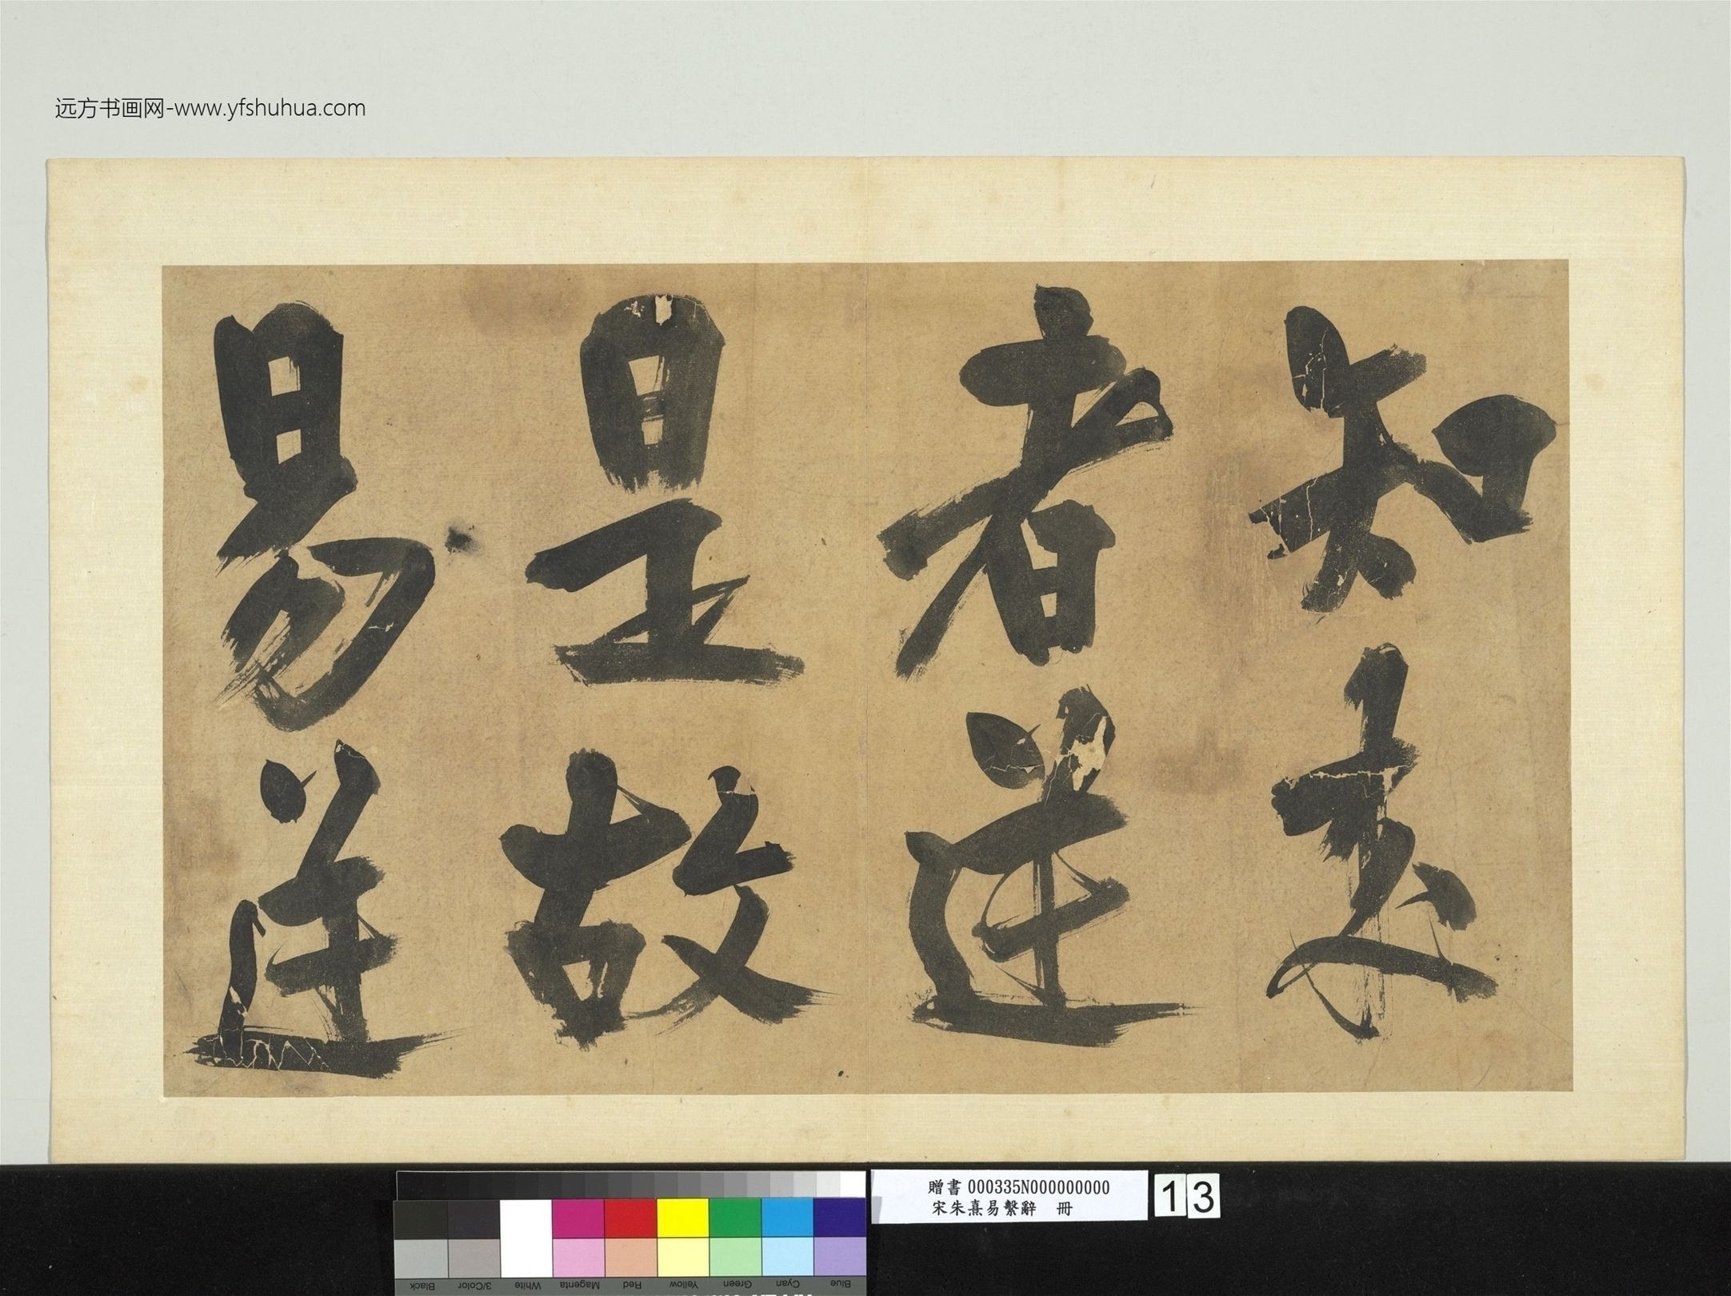 远方书画网-www.yfshuhua.com
知來
者逆
是故
易逆
贈書 000335N000000000
宋朱熹易繫辭 冊
13
Black
3/Color
White
Magenta
Red
Yellow
Green
Cyan
Blue